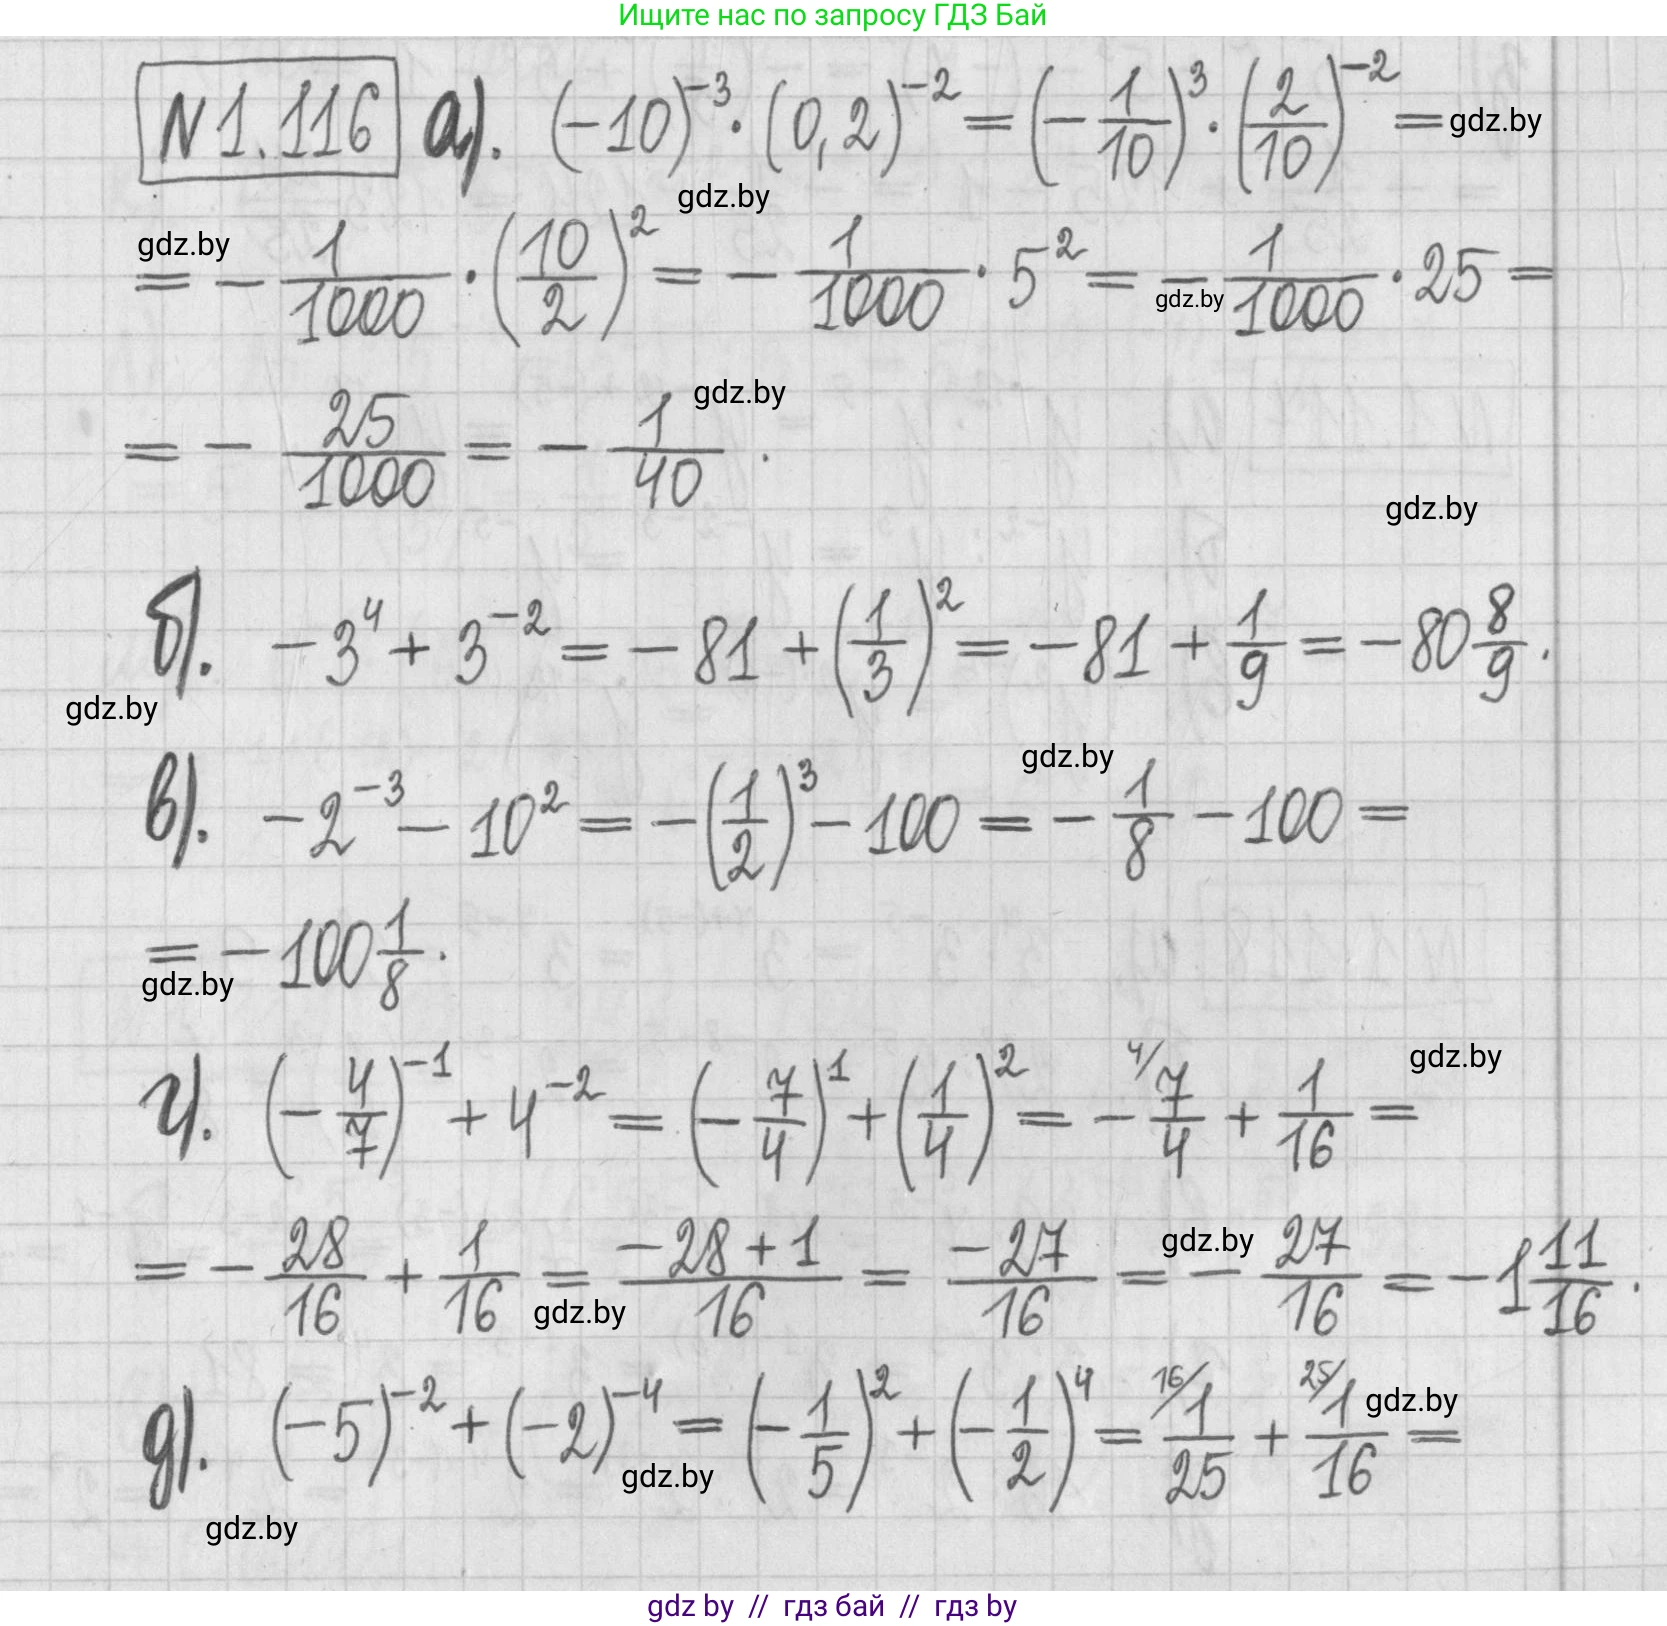 Ищите нас по запросу ГДЗ Бай
N1.116 а). (-10)^{-3} · (0,2)^{-2} = (-1/10)^3 · (2/10)^{-2} = gdz.by
gdz.by
gdz.by
= - 1/1000 · (10/2)^2 = - 1/1000 · 5^2 = - 1/1000 · 25 =
gdz.by
gdz.by
= - 25/1000 = - 1/40 .
gdz.by
б). -3^4 + 3^{-2} = -81 + (1/3)^2 = -81 + 1/9 = -80 8/9 .
gdz.by
gdz.by
в). -2^{-3} - 10^2 = -(1/2)^3 - 100 = - 1/8 - 100 =
= -100 1/8 .
gdz.by
gdz.by
г). (-4/7)^{-1} + 4^{-2} = (-7/4)^1 + (1/4)^2 = - ^{4/} 7/4 + 1/16 =
gdz.by
= - 28/16 + 1/16 = (-28+1)/16 = -27/16 = - 27/16 = -1 11/16 .
gdz.by
д). (-5)^{-2} + (-2)^{-4} = (-1/5)^2 + (-1/2)^4 = ^{16/} 1/25 + ^{25/} 1/16 =
gdz.by
gdz.by
gdz.by
gdz by // гдз бай // гдз by